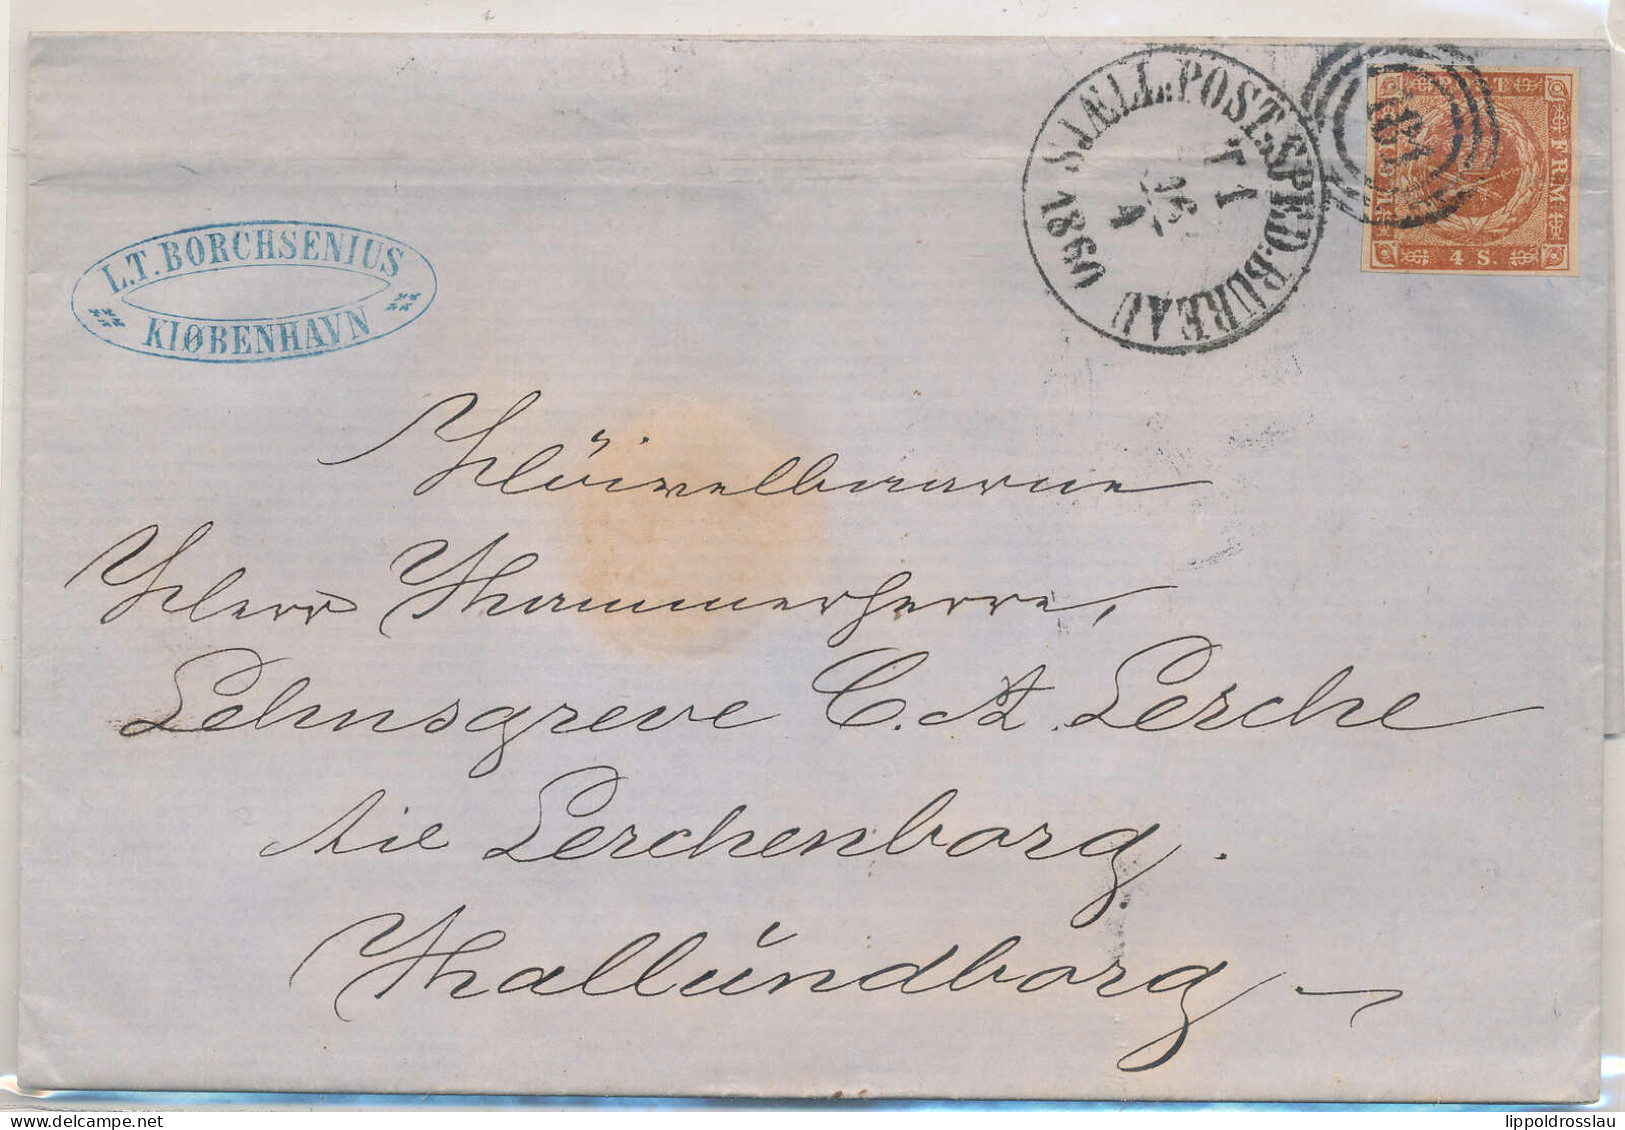 L.T. BORCHSENIUS
KIØBENHAVN
SJÆLL. POST. SPED. BUREAU
1860
T 1
4
181
FRM
4 S.
Höivelbaarne
Herr Kammerherre,
Lehnsgreve C. A. Lerche
til Lerchenborg.
Kallundborg
lippoldrosslau